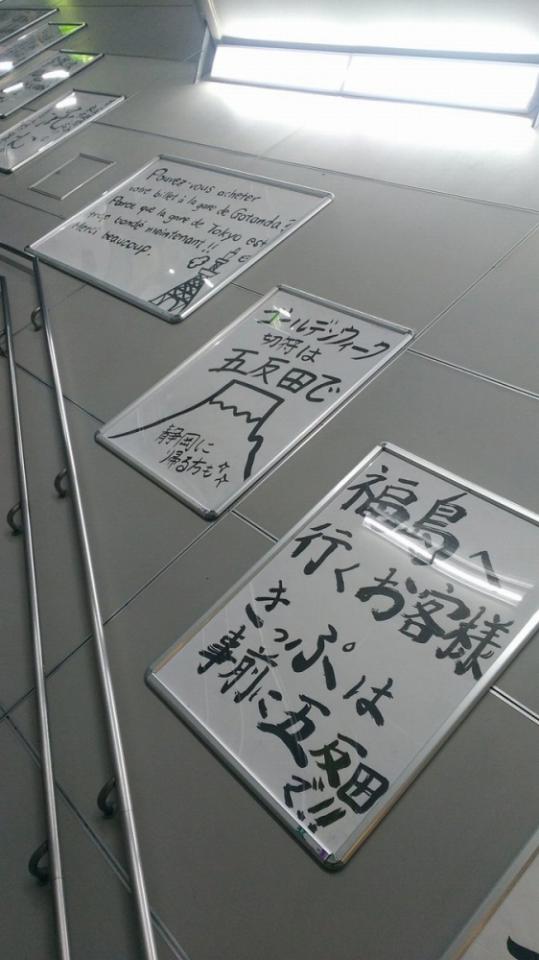 Pouvez-vous acheter
votre billet à la gare de Gotanda?
Parce que la gare de Tokyo est
bondé maintenant!!
Merci beaucoup.
ゴールデンウィーク
切符は
五反田で
静岡に
帰る方も
福島へ
行くお客様
きっぷは
事前に五反田
で!!